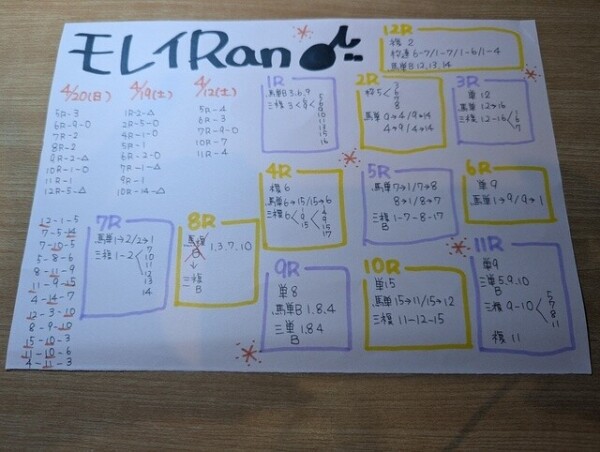 モレイRan
4/20(日)
5R-3
6R-9-0
7R-2
8R-2
9R-2-△
10R-1-0
11R-1
12R-5-△
4/19(土)
1R-2-△
2R-5-0
4R-1-0
5R-1
6R-2-0
7R-1-△
9R-1
10R-14-△
4/12(土)
5R-4
6R-3
7R-9-0
10R-7
11R-4
12-1-5
7-5-14
7-10-5
5-8-6
8-11-9
11-9-15
4-14-7
12-3-10
8-9-10
15-10-3
11-10-6
4-11-3
1R
馬単B 3.6.9
三複 3<8<
2R
枠5<
6
7
8
馬単 9→4/9→14
4→9/4→14
3R
単 12
馬単 12→16
三複 12-16<
4R
複 6
馬単6→15/15→6
三複 6<
5R
馬単 7→1/7→8
8→1/8→7
三複 1-7-8-17
B
6R
単 9
馬単 1→9/9→1
7R
馬単 1→2/2→1
三複 1-2<
7
10
11
12
13
14
8R
馬複
B
1,3,7,10
↓
三複
B
9R
単 8
馬単B 1.8.4
三単 1.8.4
B
10R
単15
馬単 15→11/15→12
三複 11-12-15
11R
単9
三単 5.9.10
B
三複 9-10<
5
7
8
11
複 11
12R
複 2
枠連 6-7/1-7/1-6/1-4
馬単B 12,13,14